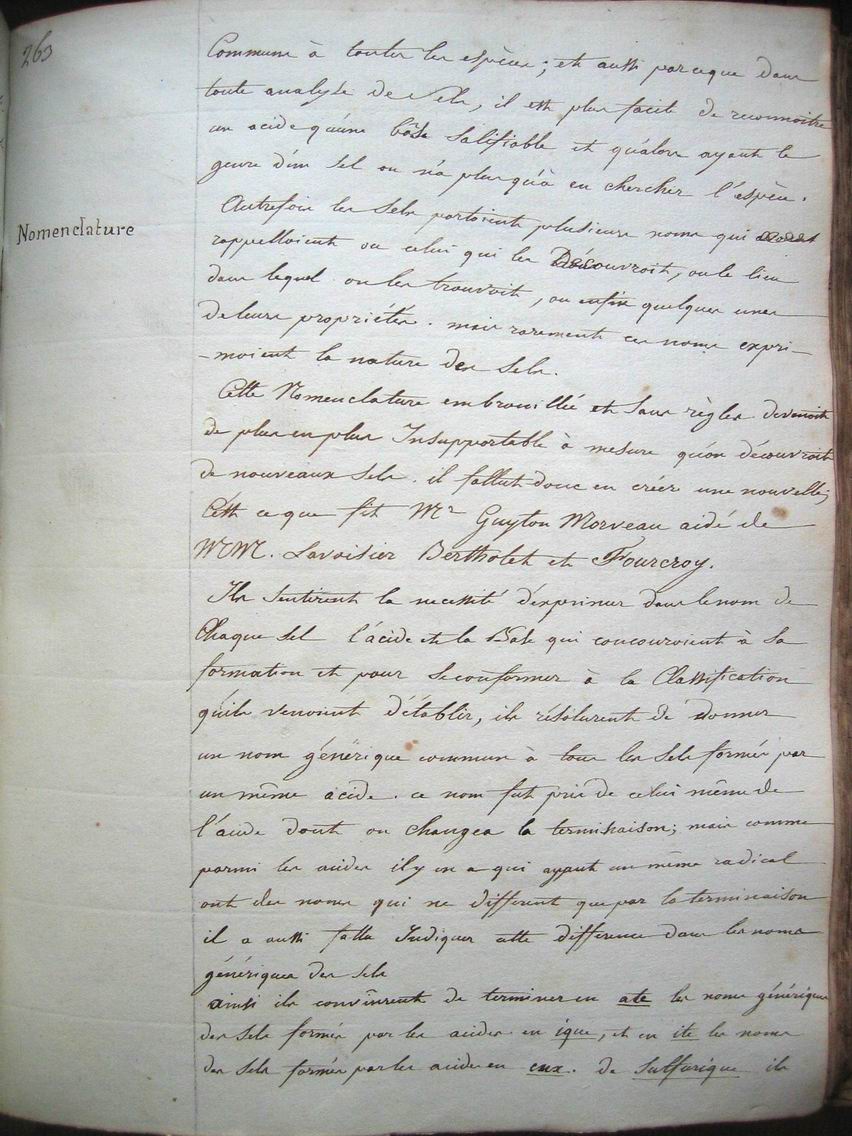 263
Commune à toutes les espèces; et aussi parceque dans
toute analyse de sels, il est plus facile de reconnoitre
un acide qu'une base salifiable et qu'alors ayant le
genre d'un sel on n'a plus qu'à en chercher l'espèce.
Nomenclature
Autrefois les sels portoient plusieurs noms qui
rappelloient ou celui qui les Découvroit, ou le lieu
dans lequel on les trouvoit, ou enfin quelques unes
de leurs propriétés. mais rarement ces noms expri-
-moient la nature des sels.
Cette Nomenclature embrouillée et sans règles devenoit
de plus en plus Insupportable à mesure qu'on découvroit
de nouveaux sels. il fallut donc en créer une nouvelle;
C'est ce que fit Mr Guyton Morveau aidé de
MM. Lavoisier Bertholet et Fourcroy.
Ils sentirent la necessité d'exprimer dans le nom de
Chaque sel l'acide et la Base qui concouroient à sa
formation et pour se conformer à la Classification
qu'ils venoient d'établir, ils résolurent de donner
un nom générique commun à tous les sels formés par
un même acide. ce nom fut pris de celui même de
l'acide dont on changea la terminaison; mais comme
parmi les acides il y en a qui ayant un même radical
ont des noms qui ne different que par la terminaison
il a aussi fallu Indiquer cette difference dans les noms
génériques des sels
ainsi ils convinrent de terminer en ate les noms génériques
des sels formés par les acides en ique, et en ite les noms
des sels formés par les acides en eux. de sulfurique ils